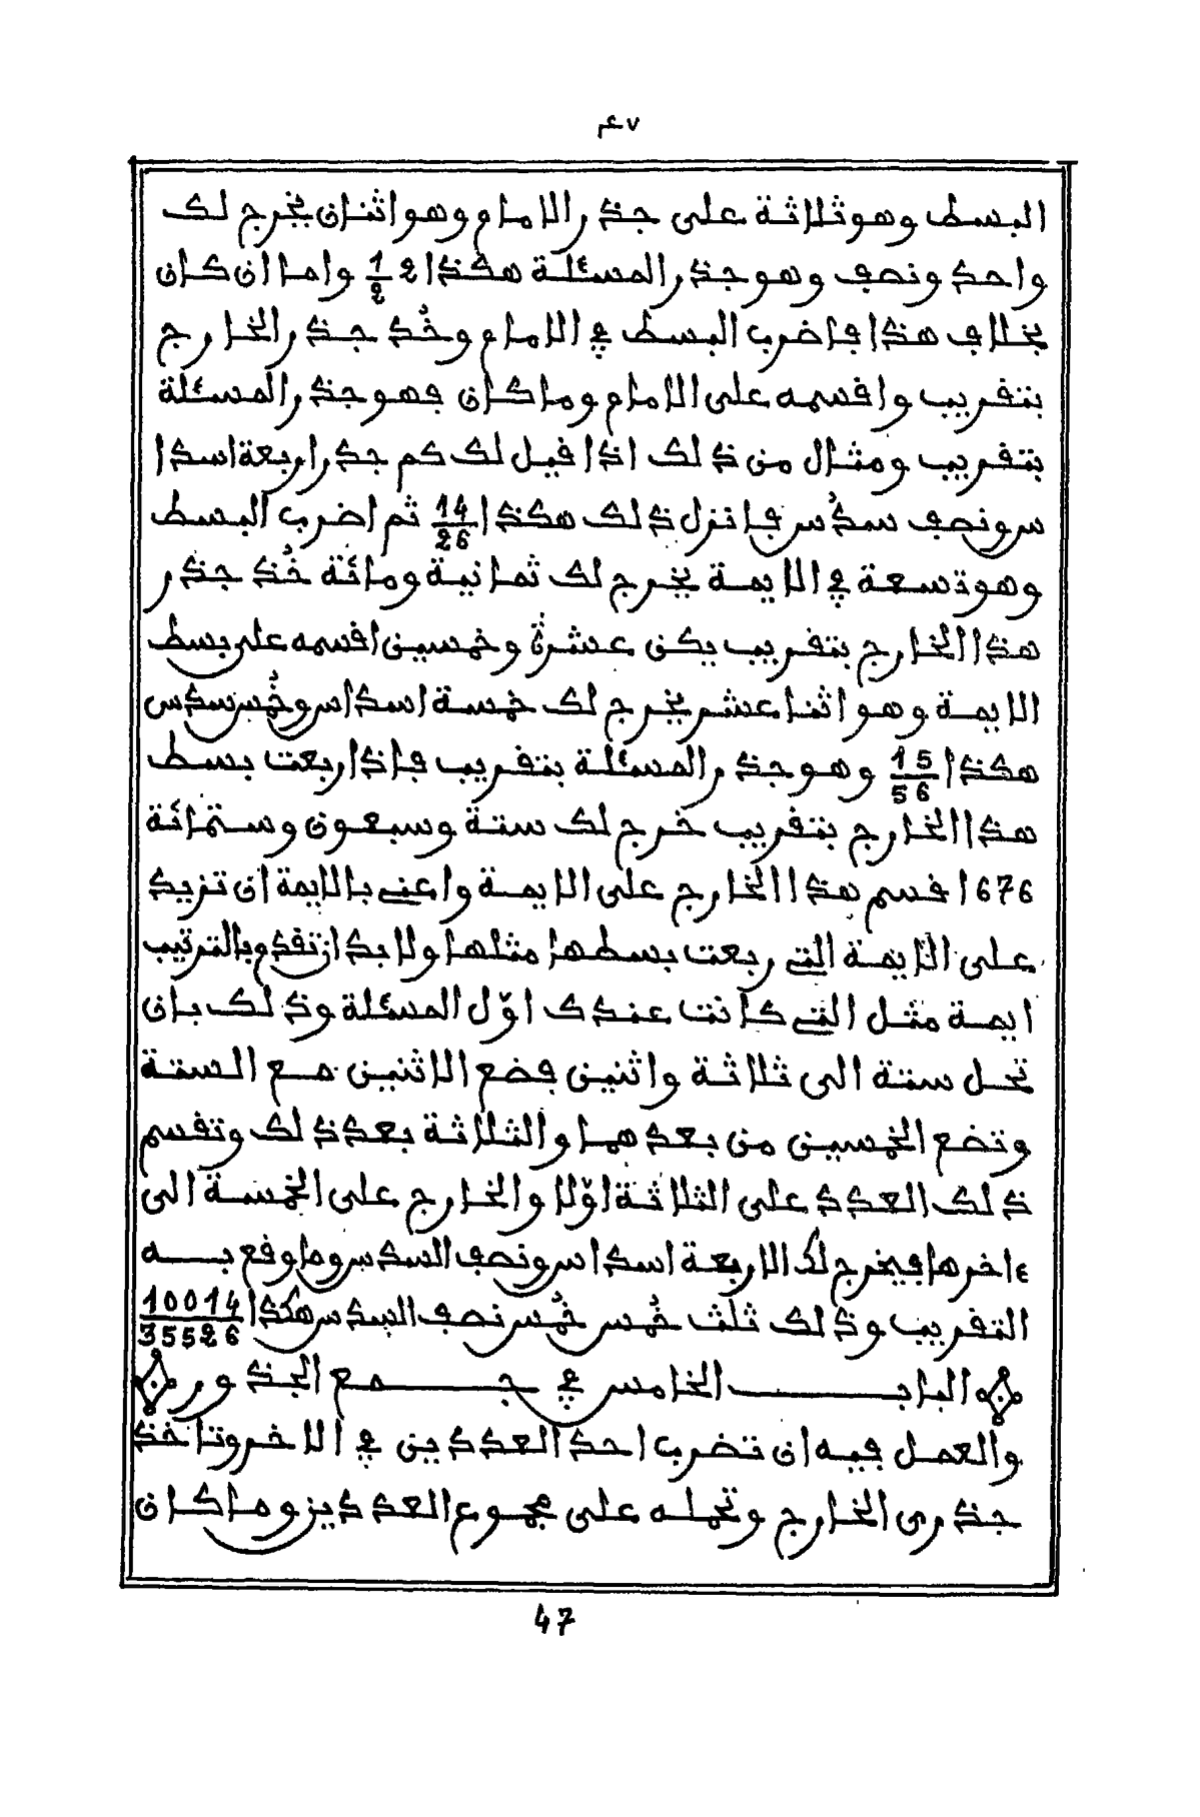 ٤٧
البسط وهو ثلاثة على جذر الامام وهو اثنان يخرج لك
واحد ونصف وهو جذر المسئلة هكذا 1/2 2 واما ان كان
بخلاف هذا فاضرب البسط في الامام وخُذ جذر الخارج
بتقريب واقسمه على الامام وما كان فهو جذر المسئلة
بتقريب ومثال من ذلك اذا قيل لك كم جذر اربعة اسدا
س ونصف سدُس فانزل ذلك هكذا 14/26 ثم اضرب البسط
وهو تسعة في الايمة يخرج لك ثمانية ومائة خُذ جذر
هذا الخارج بتقريب يكن عشرة وخمسين اقسمه على بسط
الايمة وهو اثنا عشر يخرج لك خمسة اسداس وخُمس سدس
هكذا 15/56 وهو جذر المسئلة بتقريب فاذا ربعت بسط
هذا الخارج بتقريب خرج لك ستة وسبعون وستمائة
676 اقسم هذا الخارج على الايمة واعني بالايمة ان تزيد
على الايمة التي ربعت بسطها مثلها ولا بد ان تقدم بالترتيب
ايمة مثل التي كانت عندك اوّل المسئلة وذلك بان
تحل ستة الى ثلاثة واثنين فضع الاثنين مع الستة
وتضع الخمسين من بعدهما والثلاثة بعد ذلك وتقسم
ذلك العدد على الثلاثة اوّلا والخارج على الخمسة الى
ءاخرها فيخرج لك الاربعة اسداس ونصف السدس وما وقع به
التقريب وذلك ثلث خُمس خُمس نصف السدس هكذا 10014/35526
والباب الخامس في جمع الجذور
والعمل فيه ان تضرب احد العددين في الاخر وتاخذ
جذري الخارج وتحمله على مجموع العددين وما كان
47